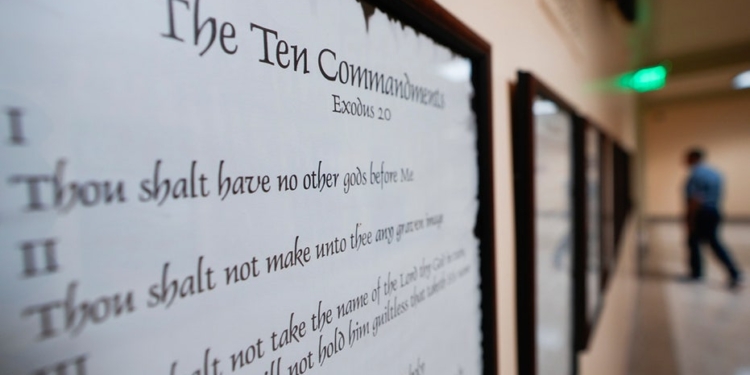 The Ten Commandments
Exodus 20
I
Thou shalt have no other gods before Me
II
Thou shalt not make unto thee any graven image
III
shalt not take the name of the Lord thy God in
will not hold him guiltless that taketh his name